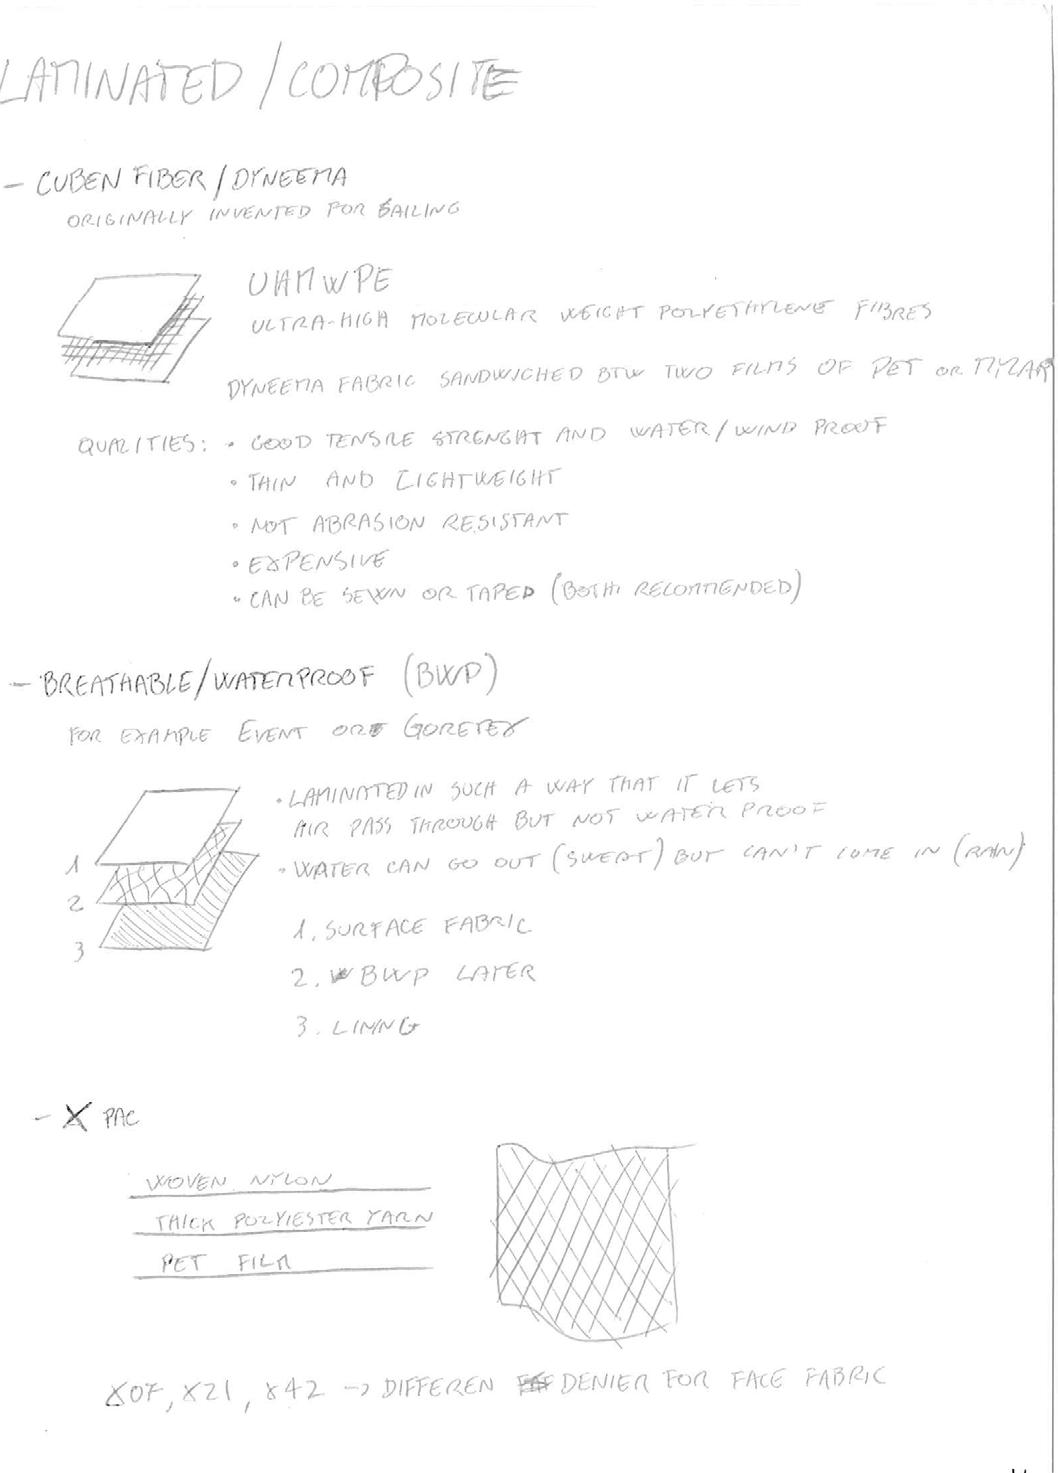 LAMINATED / COMPOSITE
- CUBEN FIBER / DYNEEMA
ORIGINALLY INVENTED FOR SAILING
UHMWPE
ULTRA-HIGH MOLECULAR WEIGHT POLYETHYLENE FIBRES
DYNEEMA FABRIC SANDWICHED BTW TWO FILMS OF PET OR MYLAR
QUALITIES: • GOOD TENSILE STRENGHT AND WATER/WIND PROOF
• THIN AND LIGHTWEIGHT
• NOT ABRASION RESISTANT
• EXPENSIVE
• CAN BE SEWN OR TAPED (BOTH RECOMMENDED)
- BREATHABLE/WATERPROOF (BWP)
FOR EXAMPLE EVENT OR GORETEX
• LAMINATED IN SUCH A WAY THAT IT LETS
AIR PASS THROUGH BUT NOT WATER PROOF
• WATER CAN GO OUT (SWEAT) BUT CAN'T COME IN (RAIN)
1
2
3
1. SURFACE FABRIC
2. BWP LAYER
3. LINNG
- X PAC
WOVEN NYLON
THICK POLYIESTER YARN
PET FILM
X07, X21, X42 -> DIFFEREN DENIER FOR FACE FABRIC